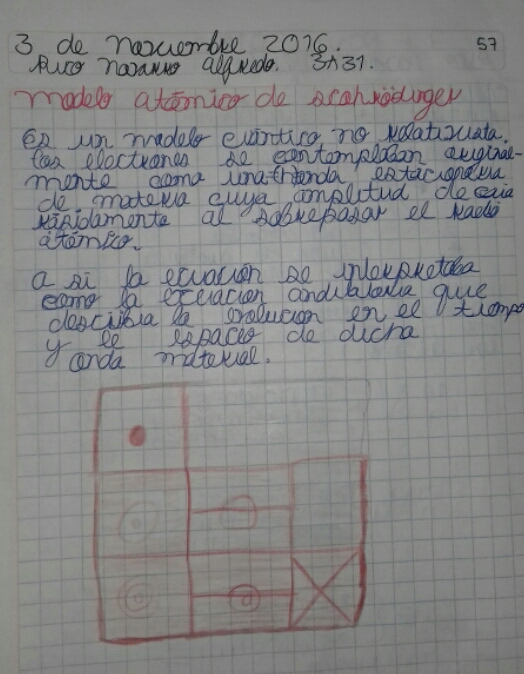 3 de noviembre 2016.
57
Ruco Navarro Alfredo. 3A31.
modelo atómico de scahrödinger
Es un modelo cuántico no relativista.
los electrones se contemplaban original-
mente como una onda estacionaria
de materia cuya amplitud decaia
rápidamente al sobrepasar el radio
átómico.
a si la ecuación se interpretaba
como la ecuacion ondulatoria que
describia la evolucion en el tiempo
y el espacio de dicha
onda material.